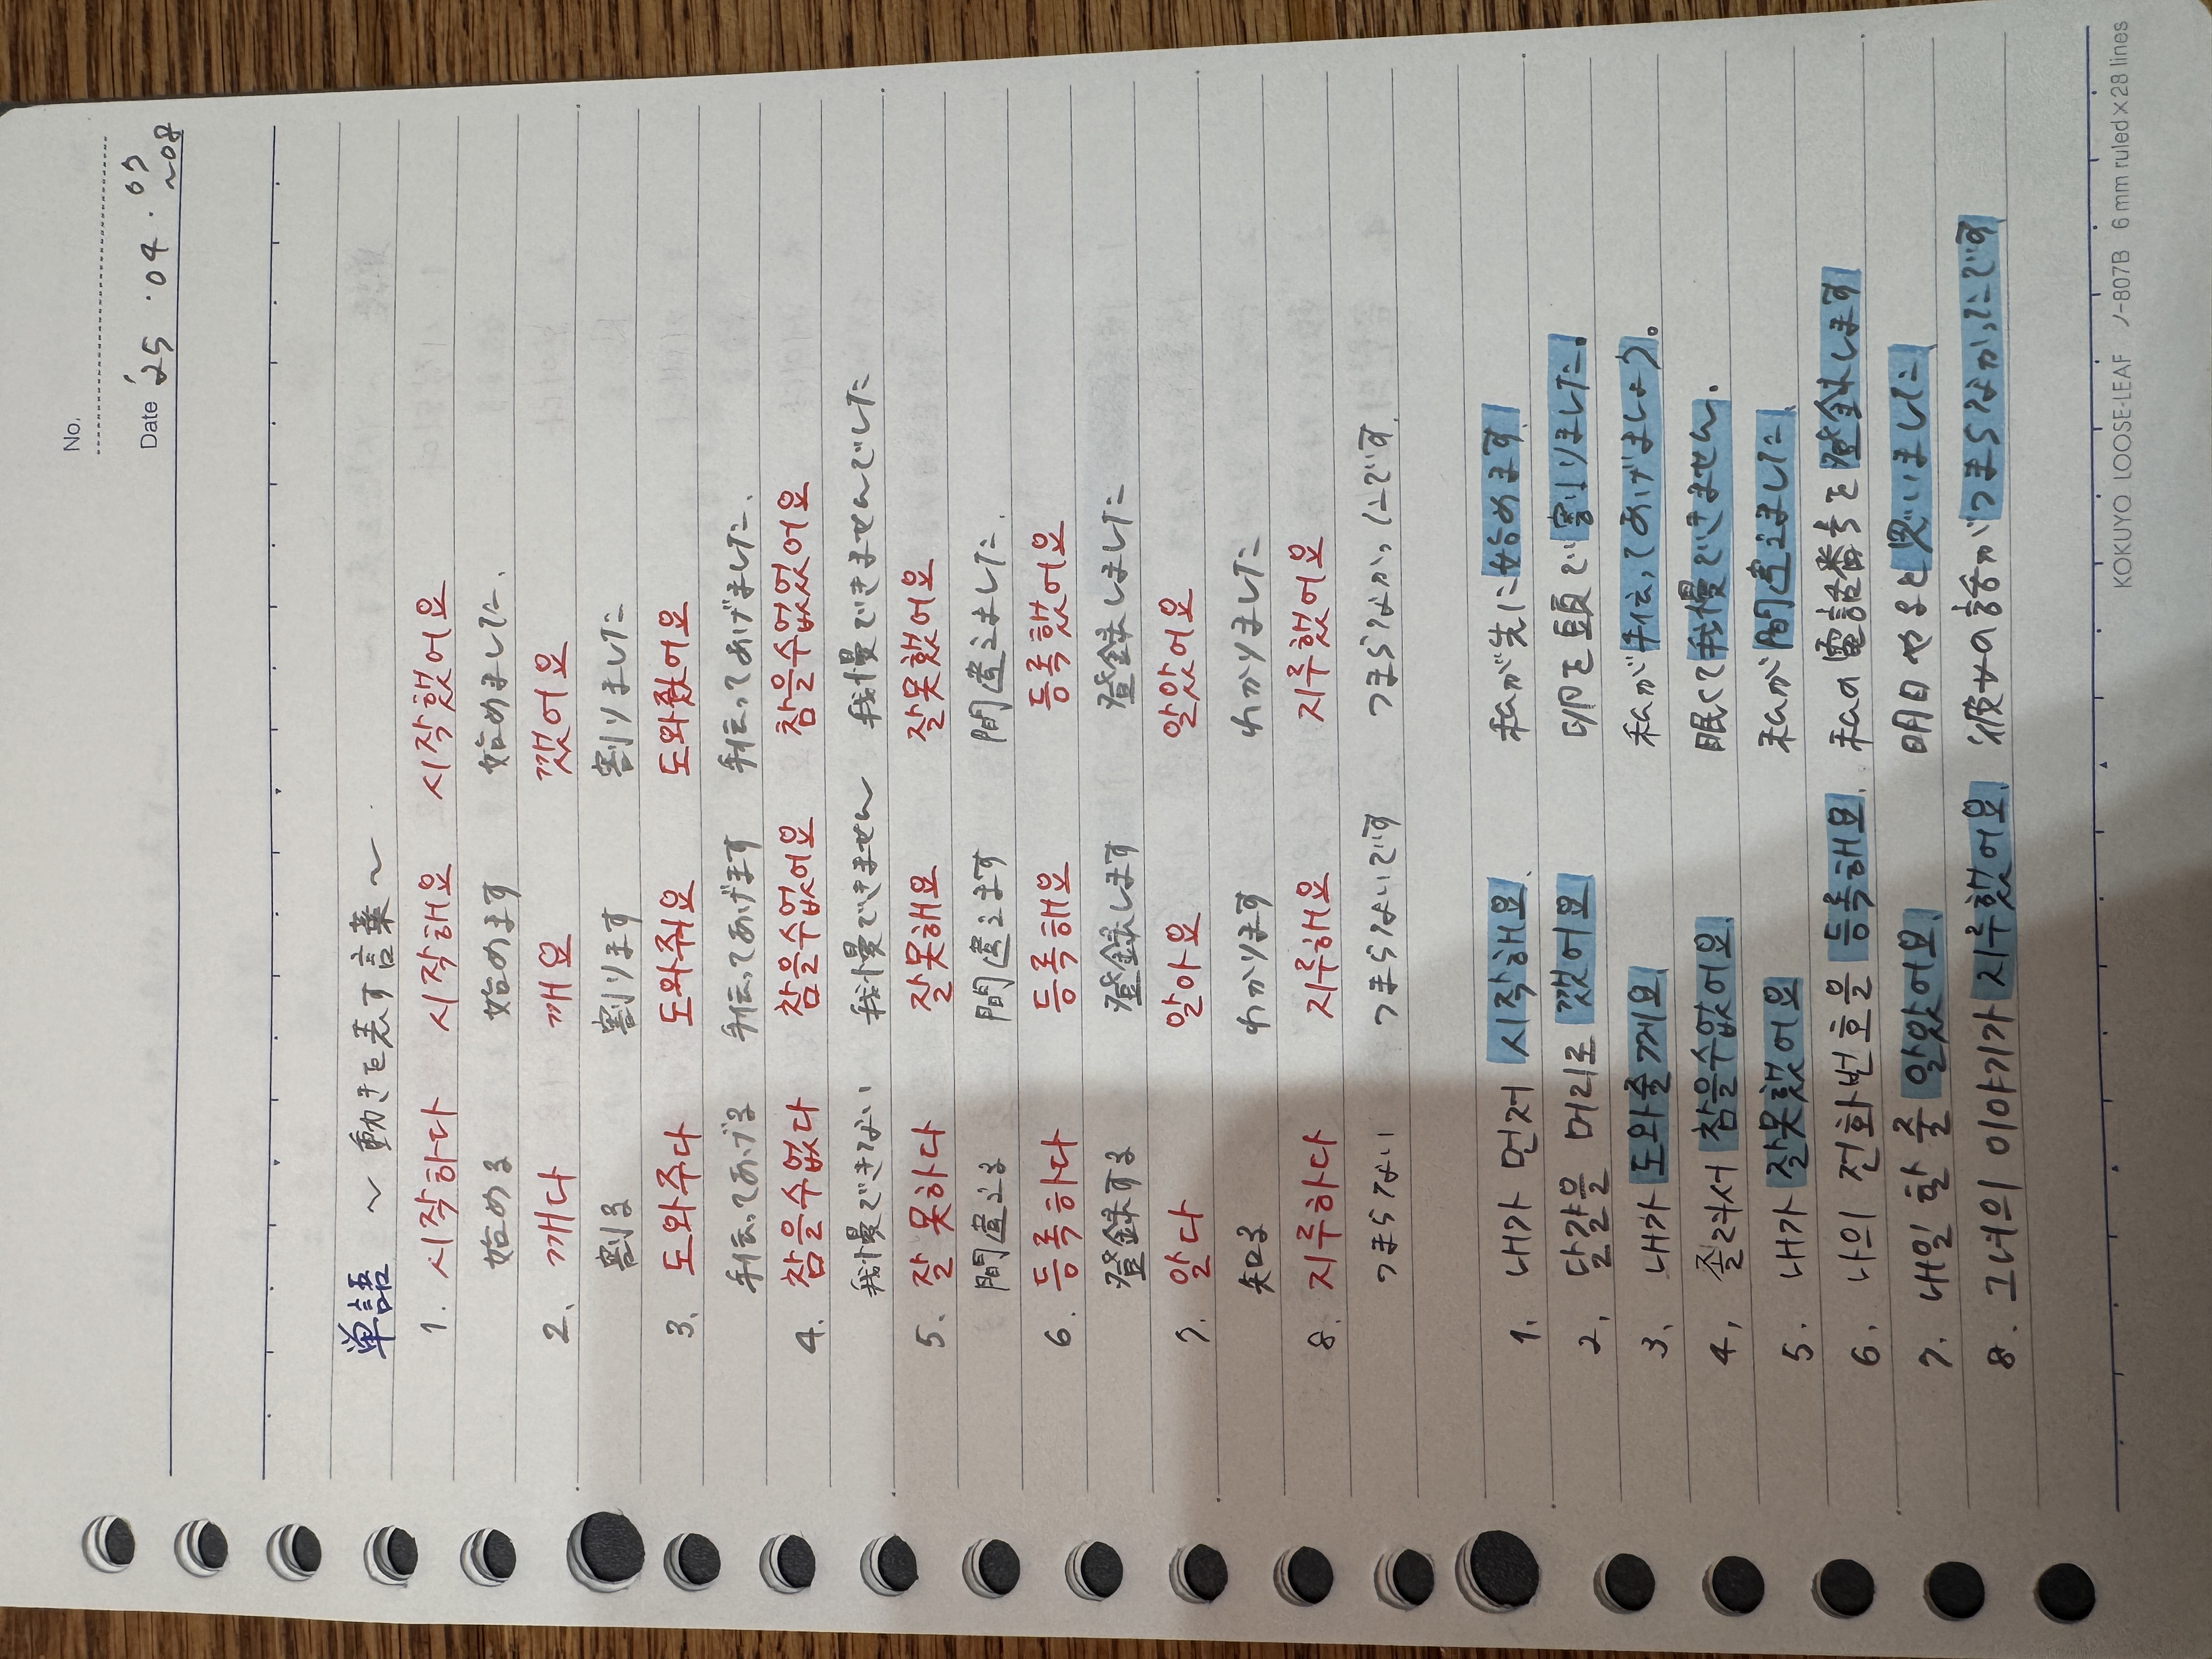 No.
Date '25 .04 .07
~08
単語 ～ 動きを表す言葉 ～
1. 시작하다 시작해요 시작했어요
始める 始めます 始めました.
2. 깨다 깨요 깼어요
割る 割ります 割りました
3. 도와주다 도와줘요 도와줬어요
手伝ってあげる 手伝ってあげます 手伝ってあげました.
4. 참을수없다 참을수없어요 참을수없었어요
我慢できない 我慢できません 我慢できませんでした
5. 잘못하다 잘못해요 잘못했어요
間違える 間違えます 間違えました.
6. 등록하다 등록해요 등록했어요
登録する 登録します 登録しました
7. 알다 알아요 알았어요
知る わかります わかりました
8. 지루하다 지루해요 지루했어요
つまらない つまらないです つまらなかったです.
1. 내가 먼저 시작해요. 私が先に始めます.
2. 달걀을 머리로 깼어요 卵を頭で割りました。
3. 내가 도와줄게요 私が手伝ってあげましょう。
4. 졸려서 참을수없어요. 眠くて我慢できません.
5. 내가 잘못했어요 私が間違えました.
6. 나의 전화번호을 등록해요. 私の電話番号を登録します
7. 내일 할 줄 알았어요. 明日やると思いました
8. 그녀의 이야기가 지루했어요. 彼女の話がつまらなかったです
KOKUYO LOOSE-LEAF ノ-807B 6 mm ruled×28 lines